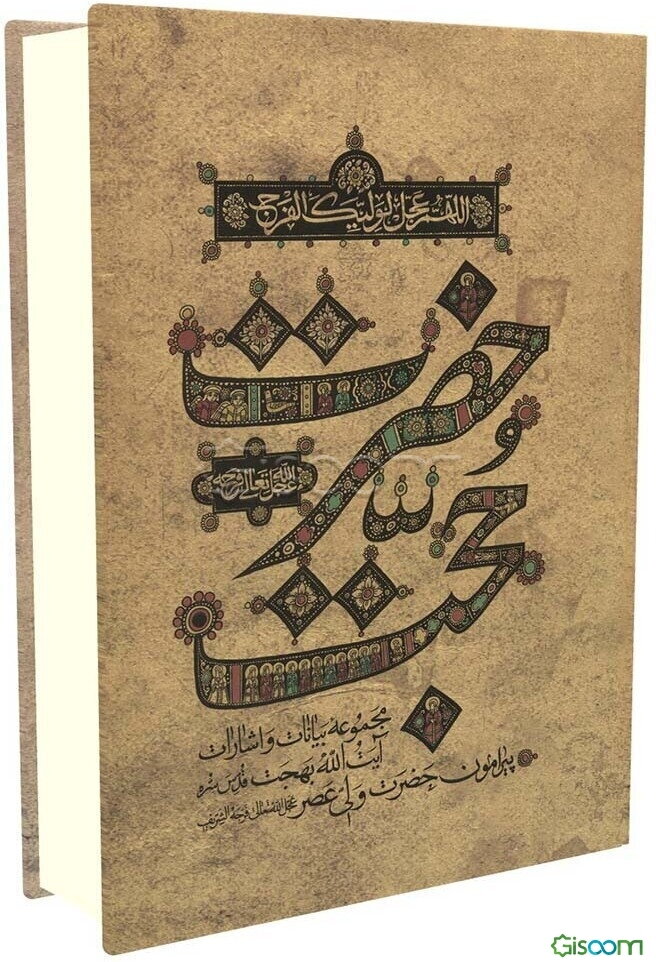 اللهم عجل لولیک الفرج
حضرت
حجت
عجل الله تعالی فرجه
مجموعه بیانات و اشارات
آیت الله بهجت قدس سره
پیرامون حضرت ولی عصر عجل الله تعالی فرجه الشریف
Gisoom